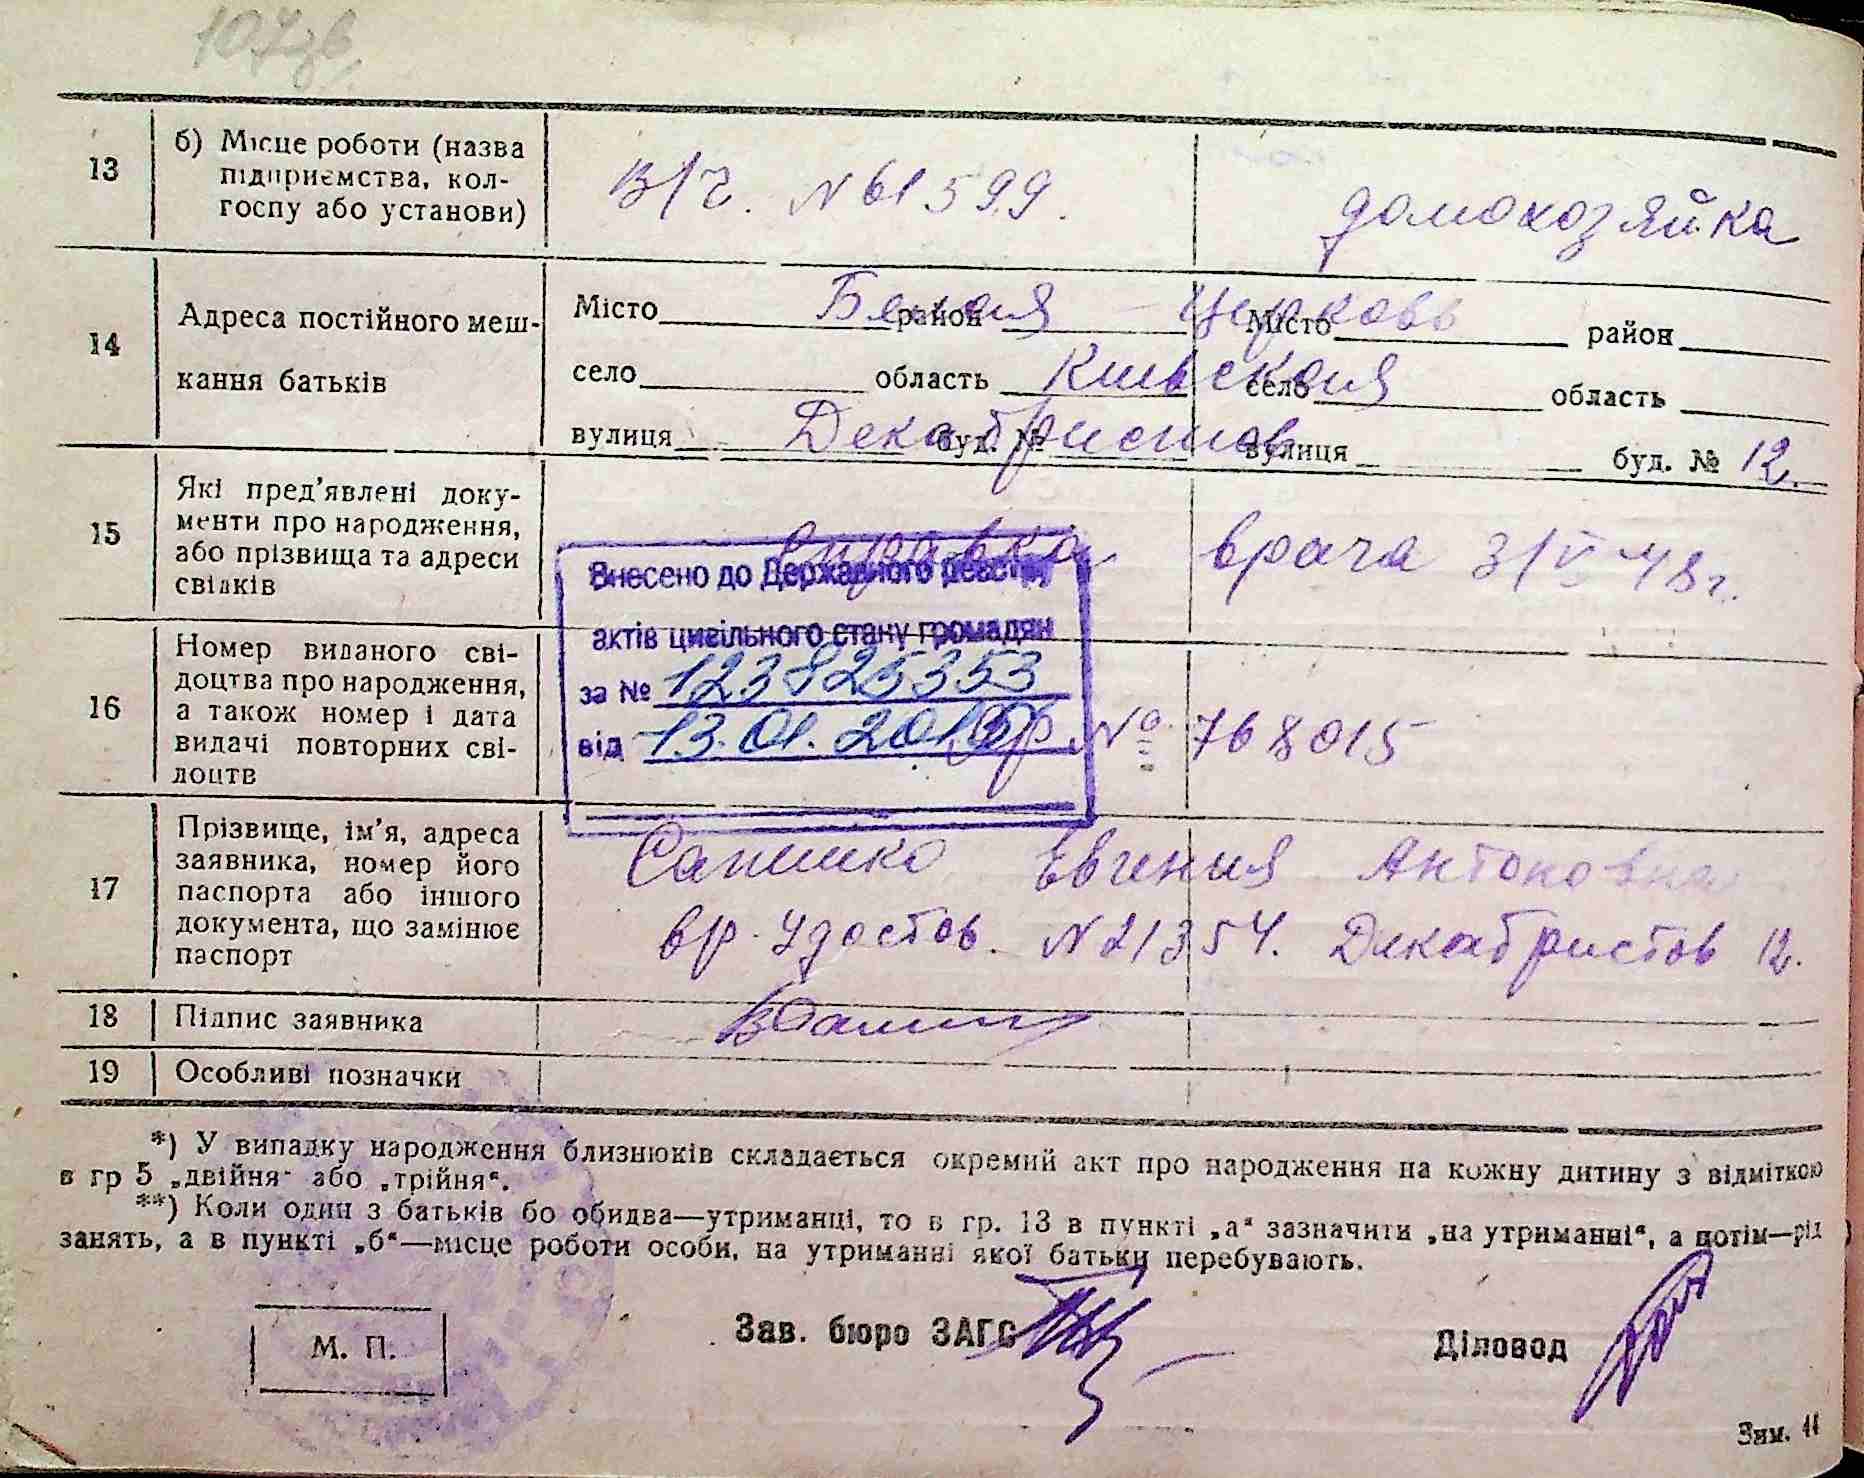 107зв
13
б) Місце роботи (назва
підприємства, кол-
госпу або установи)
в/ч. N 61599.
домохозяйка
14
Адреса постійного меш-
кання батьків
Місто Белая Церковь район
село область Киевская
вулиця Декабристов буд. №
Місто район
село область
вулиця буд. № 12.
15
Які пред'явлені доку-
менти про народження,
або прізвища та адреси
свідків
справка врача 3/V 48 г.
Внесено до Державного реєстру
актів цивільного стану громадян
за № 123825353
від 13.01.201
16
Номер виданого сві-
доцтва про народження,
а також номер і дата
видачі повторних сві-
доцтв
№ 768015
17
Прізвище, ім'я, адреса
заявника, номер його
паспорта або іншого
документа, що замінює
паспорт
Евгения Антоновна
вр. удостов. N 21354. Декабристов 12.
18
Підпис заявника
19
Особливі позначки
*) У випадку народження близнюків складається окремий акт про народження на кожну дитину з відміткою
в гр 5 „двійня“ або „трійня“.
**) Коли один з батьків бо обидва—утриманці, то в гр. 13 в пункті „а“ зазначити „на утриманні“, а потім—рід
занять, а в пункті „б“—місце роботи особи, на утриманні якої батьки перебувають.
М. П.
Зав. бюро ЗАГС
Діловод
Зим. 44